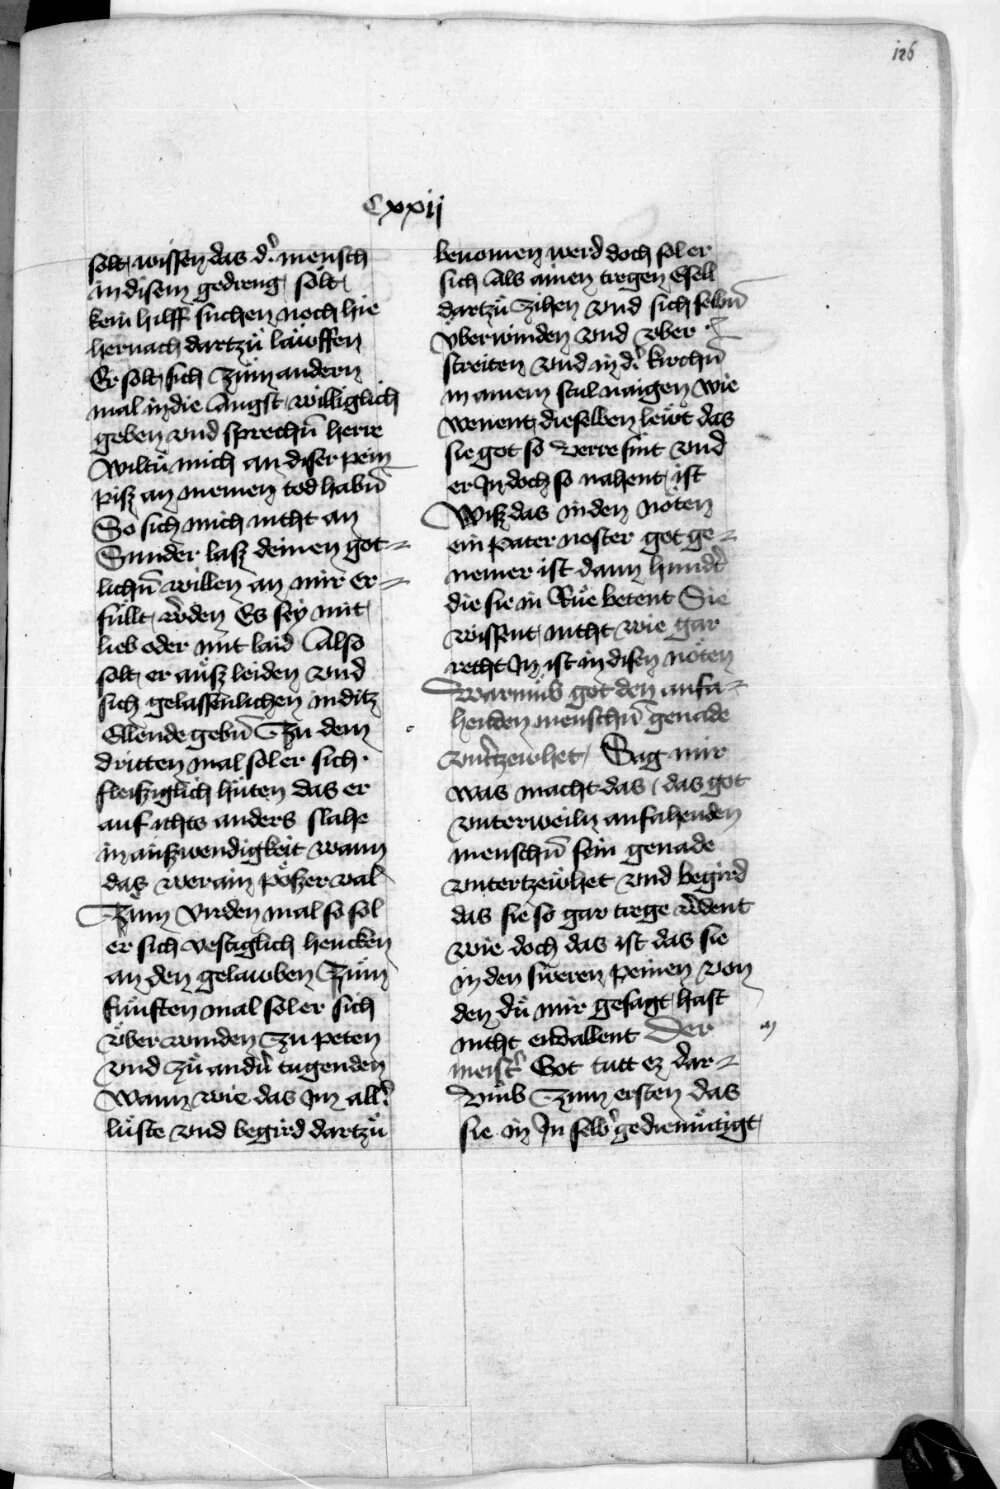 126
Cxxij
solt wissen das d' mensch
in disem gedreng solt
kein hilff suchen noch hie
hernach dartzů lauffen
Er solt sich Zům andern
mal in die Angst williglich
geben vnd sprechn̄ herre
Wiltu mich an diser pein
pisz an meinen tod habn̄
So sich mich nicht an
Sunder lasz deinen got-
lichn̄ willen an mir er-
fullt w'den Es sey mit
lieb oder mit laid Also
solt er ausz leiden vnd
sich gelassenlichen in ditz
Ellende gebn̄ Zu dem
dritten mal sol er sich
fleisziglich hüten das er
auf ichts anders slahe
in auszwendigkeit wann
das wer ain pöszer val
Zum virden mal so sol
er sich vestiglich hencken
an den gelawben Zům
funften mal sol er sich
vber winden Zu peten
vnd zu and'n tugenden
Wann wie das Im all'
lüste vnd begird dartzů
benomen werd doch sol er
sich Als ainen tregen Esell
dartzů Zihen vnd sich selbn̄
vberwinden vnd vber
streiten vnd in d' kirchn̄
in ainem stul naigen wie
wenent dieselben lewt das
sie got so verre sint vnd
er In doch so nahent ist
Wisz das in den nöten
ein pater noster got ge-
nemer ist dann hund't
die sie in Rue betent Sie
wissent nicht wie gar
recht In ist in disen nöten
Warumb got den anfa-
henden menschn̄ genade
vnt'tzewhet Sag mir
was macht das das got
vnterweiln anfahenden
menschn̄ sein genade
vntertzewhet vnd begird
das sie so gar trege w'dent
wie doch das ist das sie
in den sweren peinen von
den du mir gesagt hast
nicht envallent Der
meist' Got tutt ez dar-
vmb Zum ersten das
sie in In selb' gediemütigt